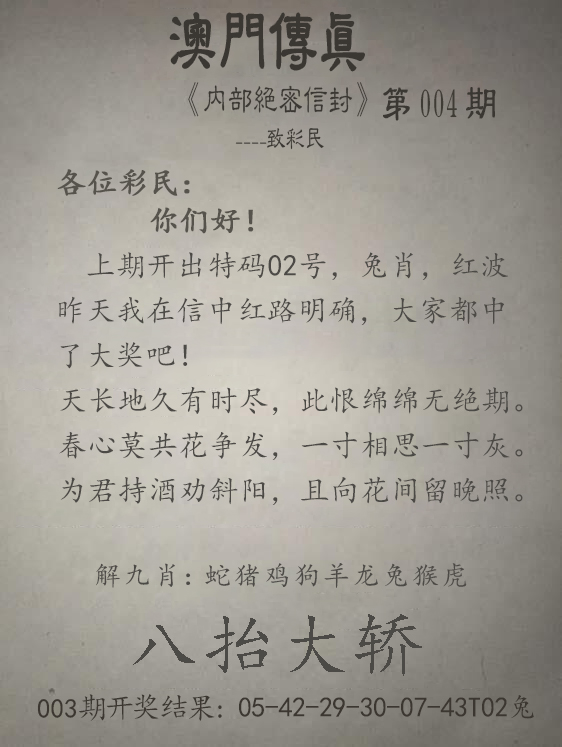 澳門傳真
《内部絕密信封》第004期
----致彩民
各位彩民：
你们好！
上期开出特码02号，兔肖，红波
昨天我在信中红路明确，大家都中
了大奖吧！
天长地久有时尽，此恨绵绵无绝期。
春心莫共花争发，一寸相思一寸灰。
为君持酒劝斜阳，且向花间留晚照。
解九肖：蛇猪鸡狗羊龙兔猴虎
八抬大轿
003期开奖结果：05-42-29-30-07-43T02兔